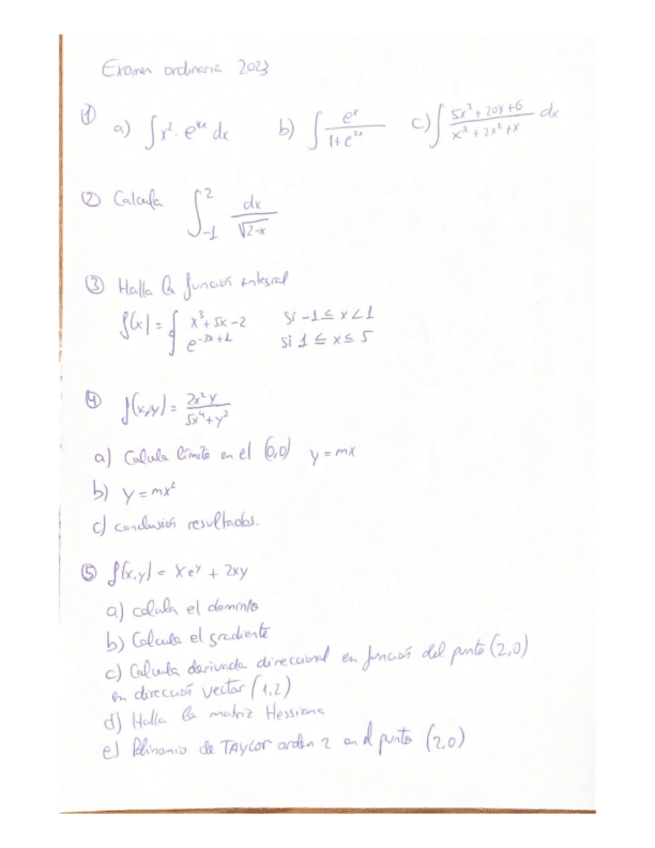 Examen ordinaria 2023
① a) ∫ x² · e^{4x} dx b) ∫ e^x / (1+e^{2x}) c) ∫ (5x² + 20x + 6) / (x³ + 2x² + x) dx
② Calcula ∫_{-1}^{2} dx / √(2-x)
③ Halla la función integral
f(x) = { x³ + 5x - 2 si -1 ≤ x < 1
e^{-3x+1} si 1 ≤ x ≤ 5
④ f(x,y) = 2x²y / (5x⁴ + y²)
a) Calcula límite en el (0,0) y = mx
b) y = mx²
c) conclusión resultados.
⑤ f(x,y) = x e^y + 2xy
a) calcula el dominio
b) Calcula el gradiente
c) Calcula derivada direccional en función del punto (2,0)
en dirección vector (1,2)
d) Halla la matriz Hessiana
e) Polinomio de TAYLOR orden 2 en el punto (2,0)